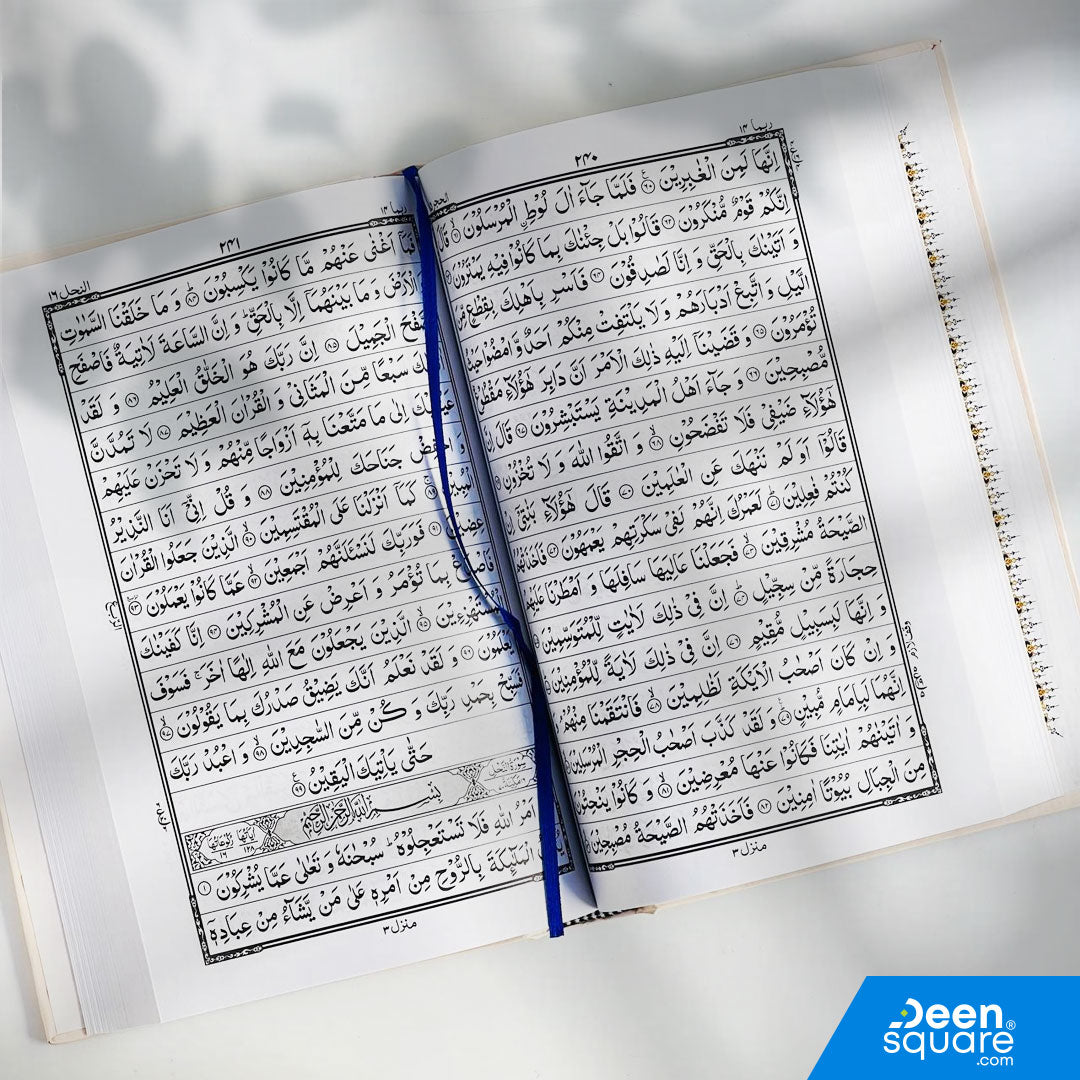 ربما ١٤
٢٤٠
الحجر
اِنَّهَا لَمِنَ الْغٰبِرِيْنَ ٦٠ فَلَمَّا جَآءَ اٰلَ لُوْطِ الْمُرْسَلُوْنَ ٦١ قَالَ
اِنَّكُمْ قَوْمٌ مُّنْكَرُوْنَ ٦٢ قَالُوْا بَلْ جِئْنٰكَ بِمَا كَانُوْا فِيْهِ يَمْتَرُوْنَ
وَ اَتَيْنٰكَ بِالْحَقِّ وَ اِنَّا لَصٰدِقُوْنَ ٦٤ فَاَسْرِ بِاَهْلِكَ بِقِطْعٍ مِّنَ
الَّيْلِ وَ اتَّبِعْ اَدْبَارَهُمْ وَ لَا يَلْتَفِتْ مِنْكُمْ اَحَدٌ وَّ امْضُوْا حَيْثُ
تُؤْمَرُوْنَ ٦٥ وَ قَضَيْنَاۤ اِلَيْهِ ذٰلِكَ الْاَمْرَ اَنَّ دَابِرَ هٰۤؤُلَآءِ مَقْطُوْعٌ
مُّصْبِحِيْنَ ٦٦ وَ جَآءَ اَهْلُ الْمَدِيْنَةِ يَسْتَبْشِرُوْنَ ٦٧ قَالَ اِنَّ
هٰۤؤُلَآءِ ضَيْفِيْ فَلَا تَفْضَحُوْنِ ٦٨ وَ اتَّقُوا اللّٰهَ وَ لَا تُخْزُوْنِ
قَالُوْۤا اَوَ لَمْ نَنْهَكَ عَنِ الْعٰلَمِيْنَ ٧٠ قَالَ هٰۤؤُلَآءِ بَنٰتِيْۤ اِنْ
كُنْتُمْ فٰعِلِيْنَ ٧١ لَعَمْرُكَ اِنَّهُمْ لَفِيْ سَكْرَتِهِمْ يَعْمَهُوْنَ ٧٢ فَاَخَذَتْهُمُ
الصَّيْحَةُ مُشْرِقِيْنَ ٧٣ فَجَعَلْنَا عَالِيَهَا سَافِلَهَا وَ اَمْطَرْنَا عَلَيْهِمْ
حِجَارَةً مِّنْ سِجِّيْلٍ ٧٤ اِنَّ فِيْ ذٰلِكَ لَاٰيٰتٍ لِّلْمُتَوَسِّمِيْنَ
وَ اِنَّهَا لَبِسَبِيْلٍ مُّقِيْمٍ ٧٦ اِنَّ فِيْ ذٰلِكَ لَاٰيَةً لِّلْمُؤْمِنِيْنَ
وَ اِنْ كَانَ اَصْحٰبُ الْاَيْكَةِ لَظٰلِمِيْنَ ٧٨ فَانْتَقَمْنَا مِنْهُمْ
اِنَّهُمَا لَبِاِمَامٍ مُّبِيْنٍ ٧٩ وَ لَقَدْ كَذَّبَ اَصْحٰبُ الْحِجْرِ الْمُرْسَلِيْنَ
وَ اٰتَيْنٰهُمْ اٰيٰتِنَا فَكَانُوْا عَنْهَا مُعْرِضِيْنَ ٨١ وَ كَانُوْا يَنْحِتُوْنَ
مِنَ الْجِبَالِ بُيُوْتًا اٰمِنِيْنَ ٨٢ فَاَخَذَتْهُمُ الصَّيْحَةُ مُصْبِحِيْنَ
منزل ٣
ربما ١٤
٢٤١
النحل ١٦
فَمَاۤ اَغْنٰى عَنْهُمْ مَّا كَانُوْا يَكْسِبُوْنَ ٨٤ وَ مَا خَلَقْنَا السَّمٰوٰتِ
وَ الْاَرْضَ وَ مَا بَيْنَهُمَاۤ اِلَّا بِالْحَقِّ وَ اِنَّ السَّاعَةَ لَاٰتِيَةٌ فَاصْفَحِ
الصَّفْحَ الْجَمِيْلَ ٨٥ اِنَّ رَبَّكَ هُوَ الْخَلّٰقُ الْعَلِيْمُ ٨٦ وَ لَقَدْ
سَبْعًا مِّنَ الْمَثَانِيْ وَ الْقُرْاٰنَ الْعَظِيْمَ ٨٧ لَا تَمُدَّنَّ
عَيْنَيْكَ اِلٰى مَا مَتَّعْنَا بِهٖۤ اَزْوَاجًا مِّنْهُمْ وَ لَا تَحْزَنْ عَلَيْهِمْ
وَ اخْفِضْ جَنَاحَكَ لِلْمُؤْمِنِيْنَ ٨٨ وَ قُلْ اِنِّيْۤ اَنَا النَّذِيْرُ
الْمُبِيْنُ كَمَاۤ اَنْزَلْنَا عَلَى الْمُقْتَسِمِيْنَ ٩٠ الَّذِيْنَ جَعَلُوا الْقُرْاٰنَ
عِضِيْنَ ٩١ فَوَرَبِّكَ لَنَسْـَٔلَنَّهُمْ اَجْمَعِيْنَ ٩٢ عَمَّا كَانُوْا يَعْمَلُوْنَ ٩٣
فَاصْدَعْ بِمَا تُؤْمَرُ وَ اَعْرِضْ عَنِ الْمُشْرِكِيْنَ ٩٤ اِنَّا كَفَيْنٰكَ
الْمُسْتَهْزِءِيْنَ ٩٥ الَّذِيْنَ يَجْعَلُوْنَ مَعَ اللّٰهِ اِلٰهًا اٰخَرَ فَسَوْفَ
يَعْلَمُوْنَ ٩٦ وَ لَقَدْ نَعْلَمُ اَنَّكَ يَضِيْقُ صَدْرُكَ بِمَا يَقُوْلُوْنَ ٩٧
فَسَبِّحْ بِحَمْدِ رَبِّكَ وَ كُنْ مِّنَ السّٰجِدِيْنَ ٩٨ وَ اعْبُدْ رَبَّكَ
حَتّٰى يَاْتِيَكَ الْيَقِيْنُ ٩٩
بِسْمِ اللّٰهِ الرَّحْمٰنِ الرَّحِيْمِ
اٰيَاتُهَا ١٢٨ رُكُوْعَاتُهَا ١٦
اَمْرُ اللّٰهِ فَلَا تَسْتَعْجِلُوْهُ سُبْحٰنَهٗ وَ تَعٰلٰى عَمَّا يُشْرِكُوْنَ ١
يُنَزِّلُ الْمَلٰٓئِكَةَ بِالرُّوْحِ مِنْ اَمْرِهٖ عَلٰى مَنْ يَّشَآءُ مِنْ عِبَادِهٖۤ
منزل ٣
Deen
square®
.com